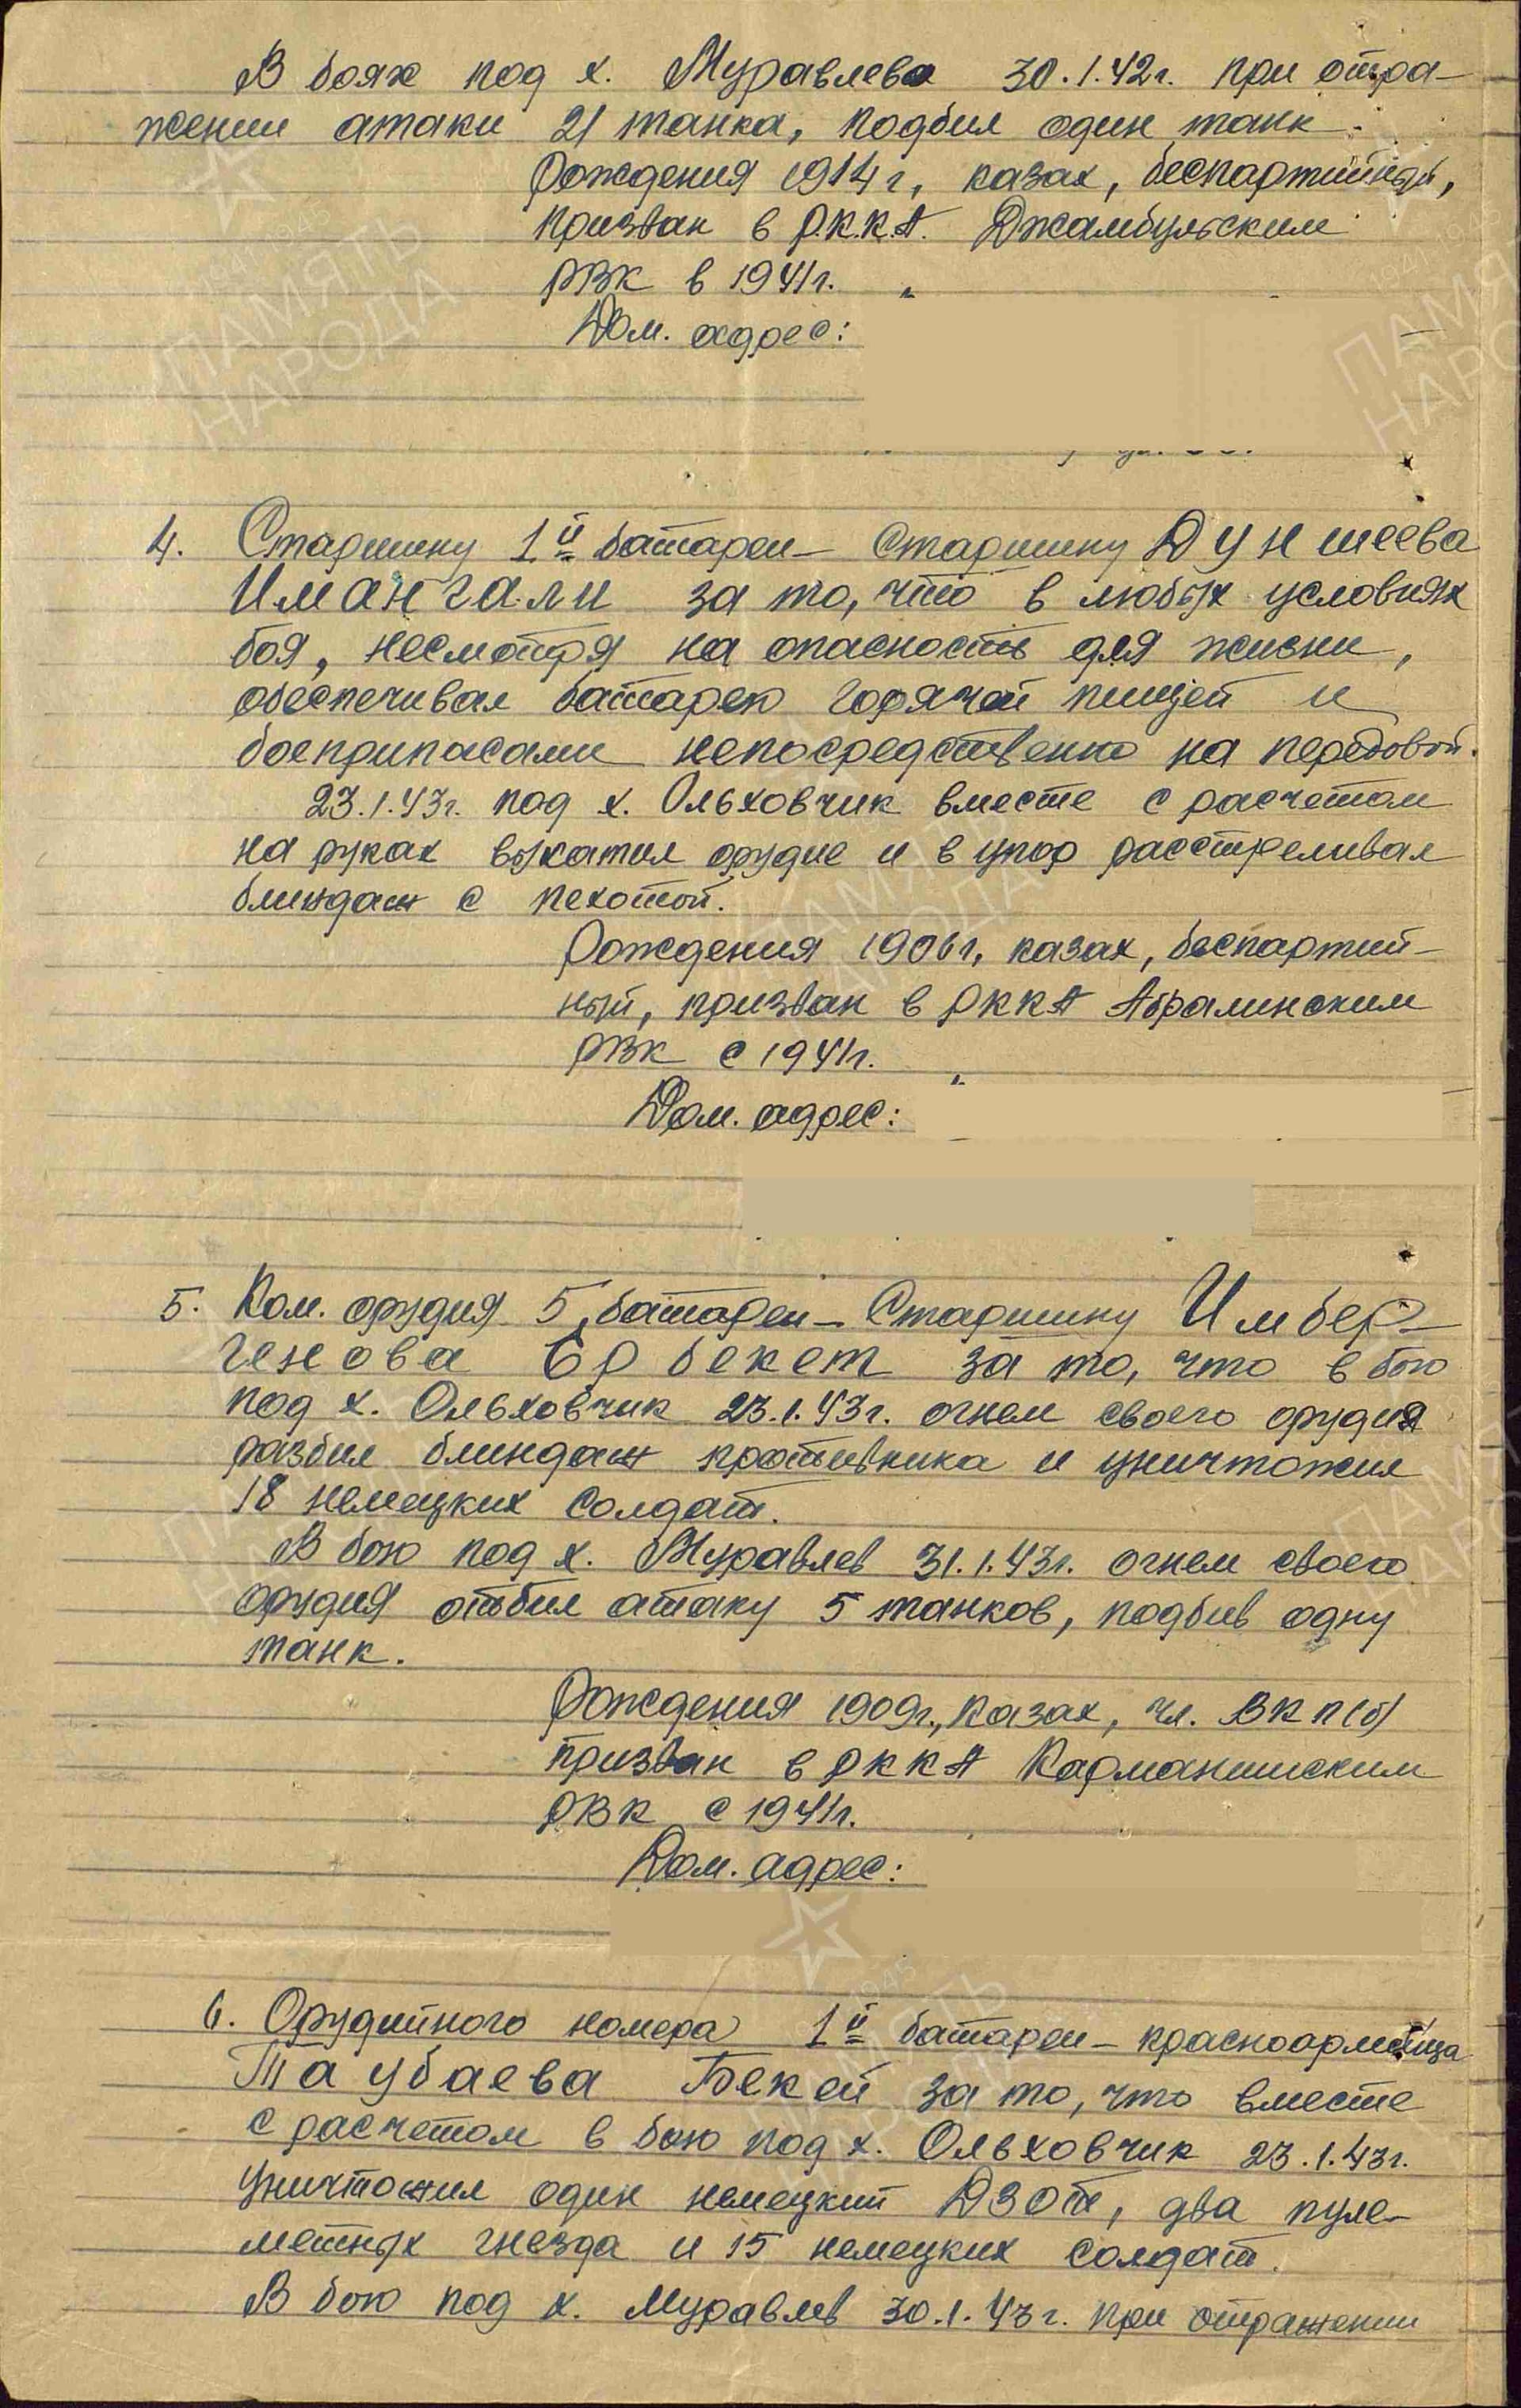 В боях под х. Муравлева 30.1.42г. при отра-
жении атаки 21 танка, подбил один танк.
Рождения 1914г, казах, беспартийный,
призван в Р.К.К.А. Джамбульским
РВК в 1941г.
Дом. адрес:
4. Старшину 1й батареи - старшину Дуншеева
Имангали за то, что в любых условиях
боя, несмотря на опасность для жизни,
обеспечивал батарею горячей пищей и
боеприпасами непосредственно на передовой.
23.1.43г. под х. Ольховчик вместе с расчетом
на руках выкатил орудие и в упор расстреливал
блиндаж с пехотой.
Рождения 1906г, казах, беспартий-
ный, призван в РККА Абралинским
РВК с 1941г.
Дом. адрес:
5. Ком. орудия 5 батареи - Старшину Имбер-
генова Ербекет за то, что в бою
под х. Ольховчик 23.1.43г. огнем своего орудия
разбил блиндаж противника и уничтожил
18 немецких солдат.
В бою под х. Муравлев 31.1.43г. огнем своего
орудия отбил атаку 5 танков, подбив одну
танк.
Рождения 1909г., казах, чл. ВКП(б)
призван в РККА Кармакшиским
РВК с 1941г.
Дом. адрес:
6. Орудийного номера 1й батареи - красноармейца
Таубаева Бекей за то, что вместе
с расчетом в бою под х. Ольховчик 23.1.43г.
уничтожил один немецкий ДЗОТ, два пуле-
метных гнезда и 15 немецких солдат.
В бою под х. Муравлев 30.1.43г. при отражении
ПАМЯТЬ
НАРОДА